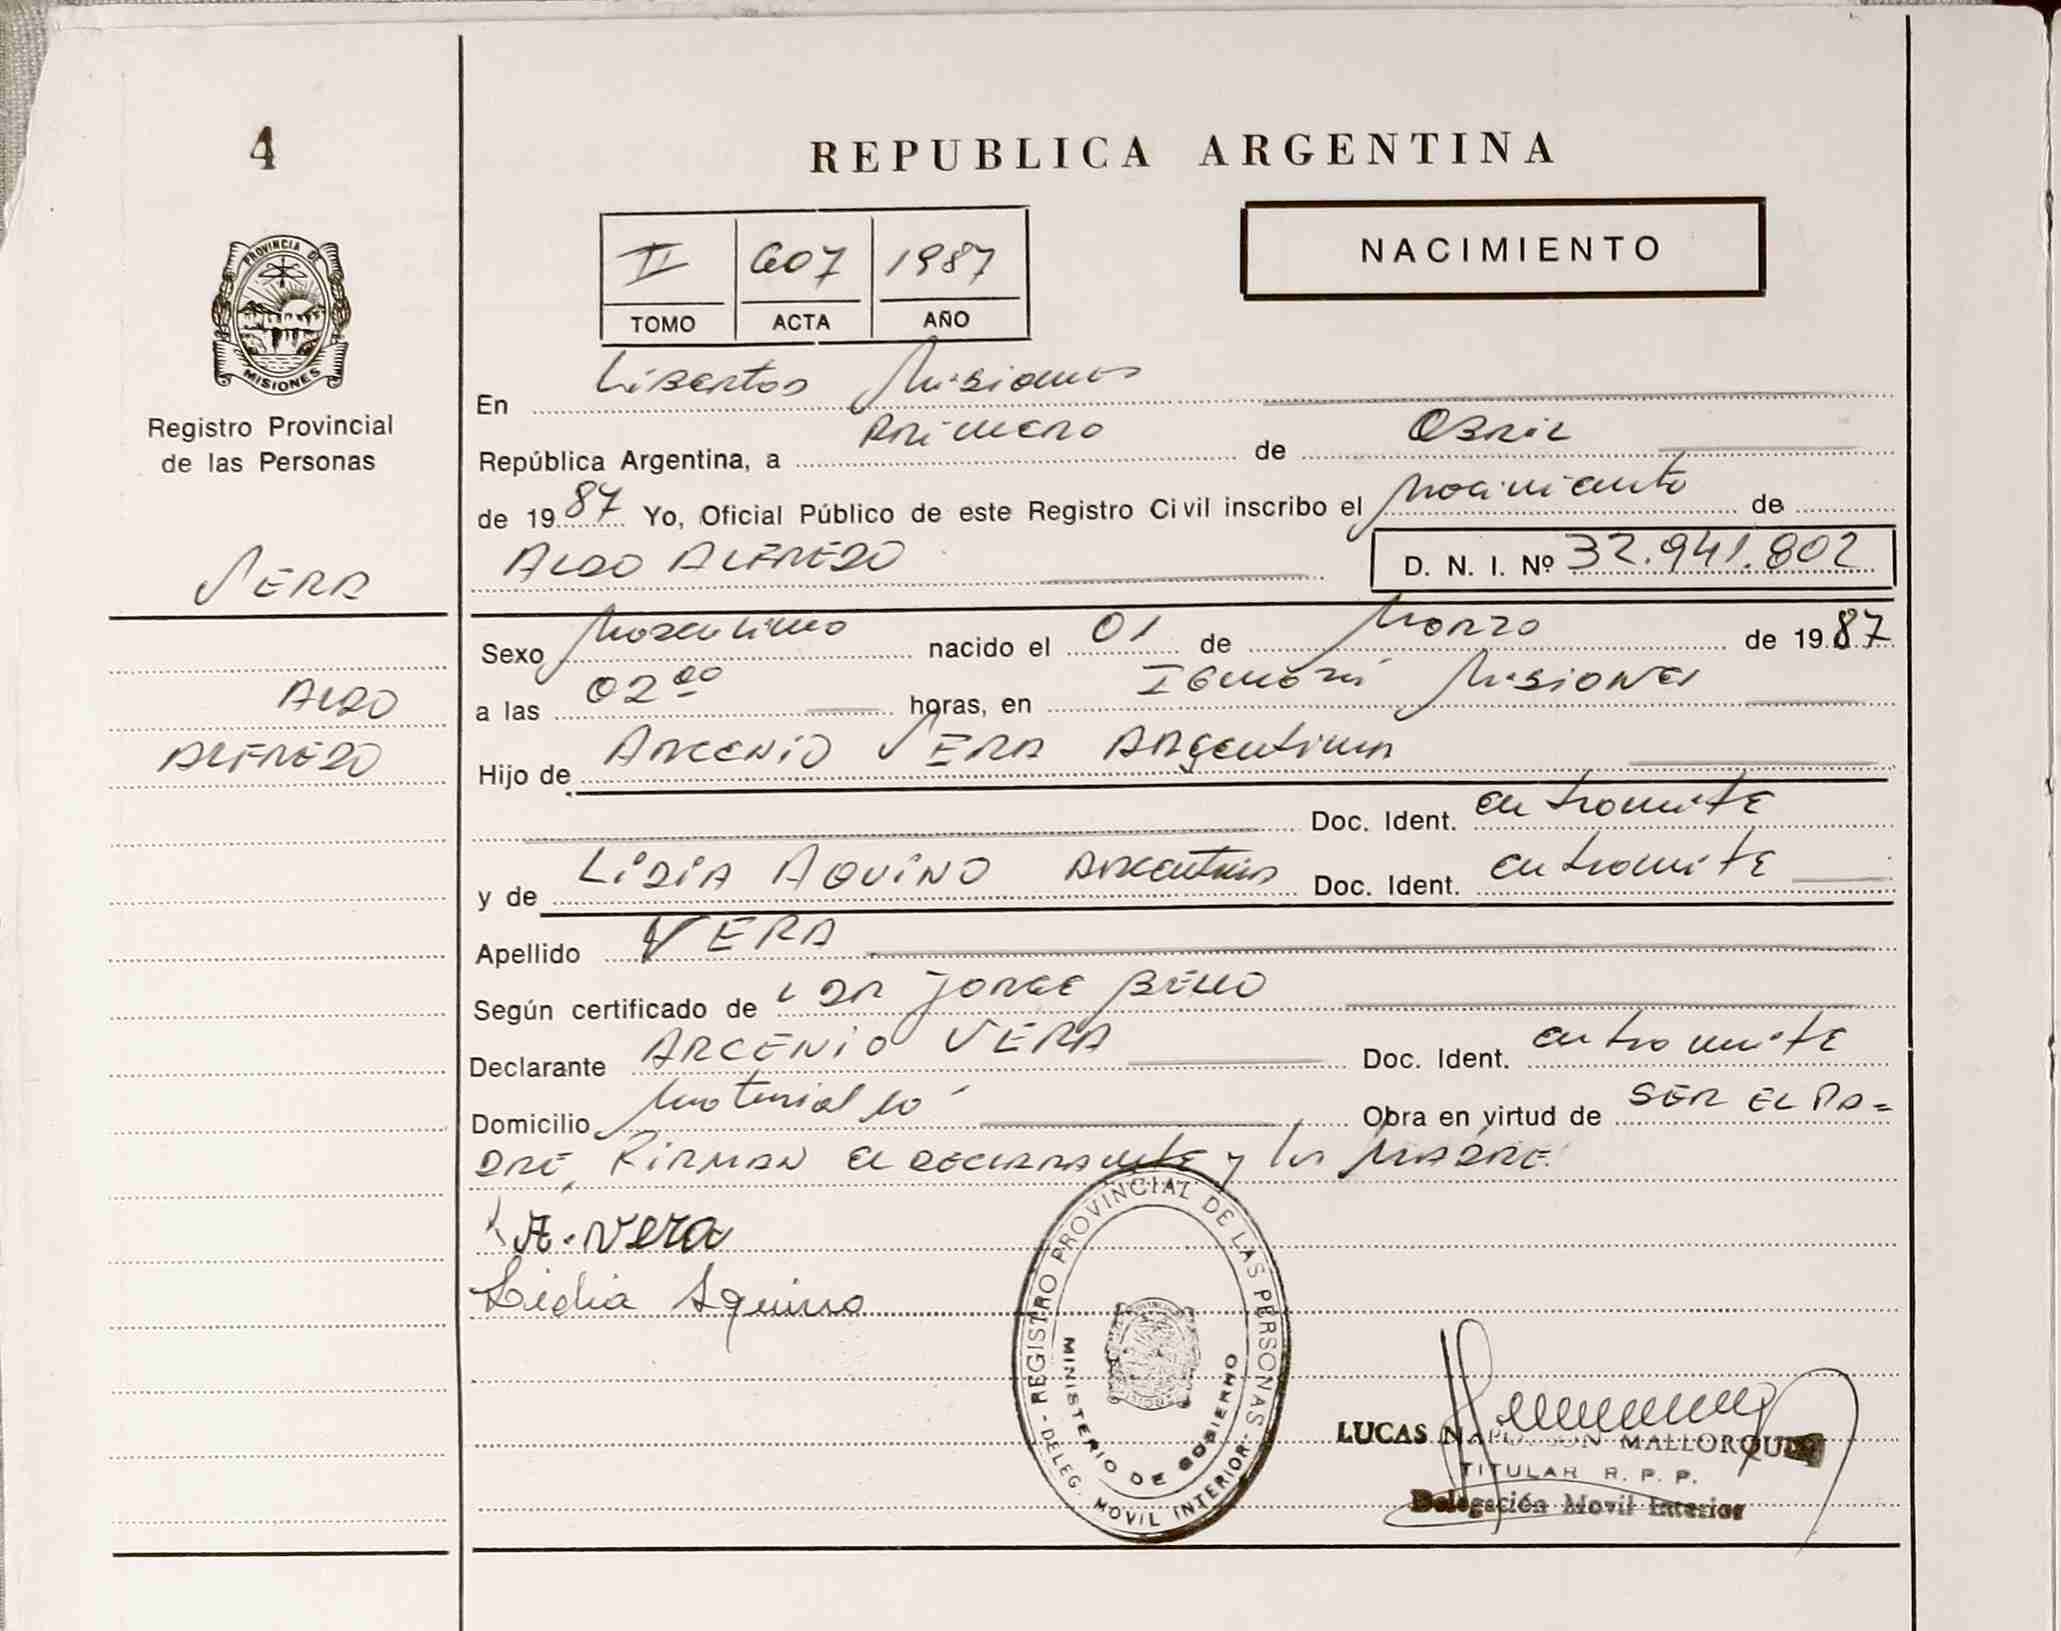 4
REPUBLICA ARGENTINA
NACIMIENTO
II 607 1987
TOMO ACTA AÑO
PROVINCIA DE
MISIONES
Registro Provincial
de las Personas
En Libertad Misiones
República Argentina, a Primero de Abril
de 1987 Yo, Oficial Público de este Registro Civil inscribo el Nacimiento de
ALDO ALFREDO D. N. I. Nº 32.941.802
VERA
ALDO
ALFREDO
Sexo Masculino nacido el 01 de Marzo de 1987
a las 02 00 horas, en Misiones
Hijo de ARCENIO VERA Argentina
Doc. Ident. en tramite
y de LIDIA AQUINO Argentina Doc. Ident. en tramite
Apellido VERA
Según certificado de JORGE BELLO
Declarante ARCENIO VERA Doc. Ident. en tramite
Domicilio Obra en virtud de SER EL PA=
DRE, FIRMAN el DECLARANTE y la MADRE.
A. Vera
Lidia Aquino
REGISTRO PROVINCIAL DE LAS PERSONAS
MINISTERIO DE GOBIERNO
- DELEG. MOVIL INTERIOR -
LUCAS NAPOLEON MALLORQUIN
TITULAR R. P. P.
Delegación Movil Interior